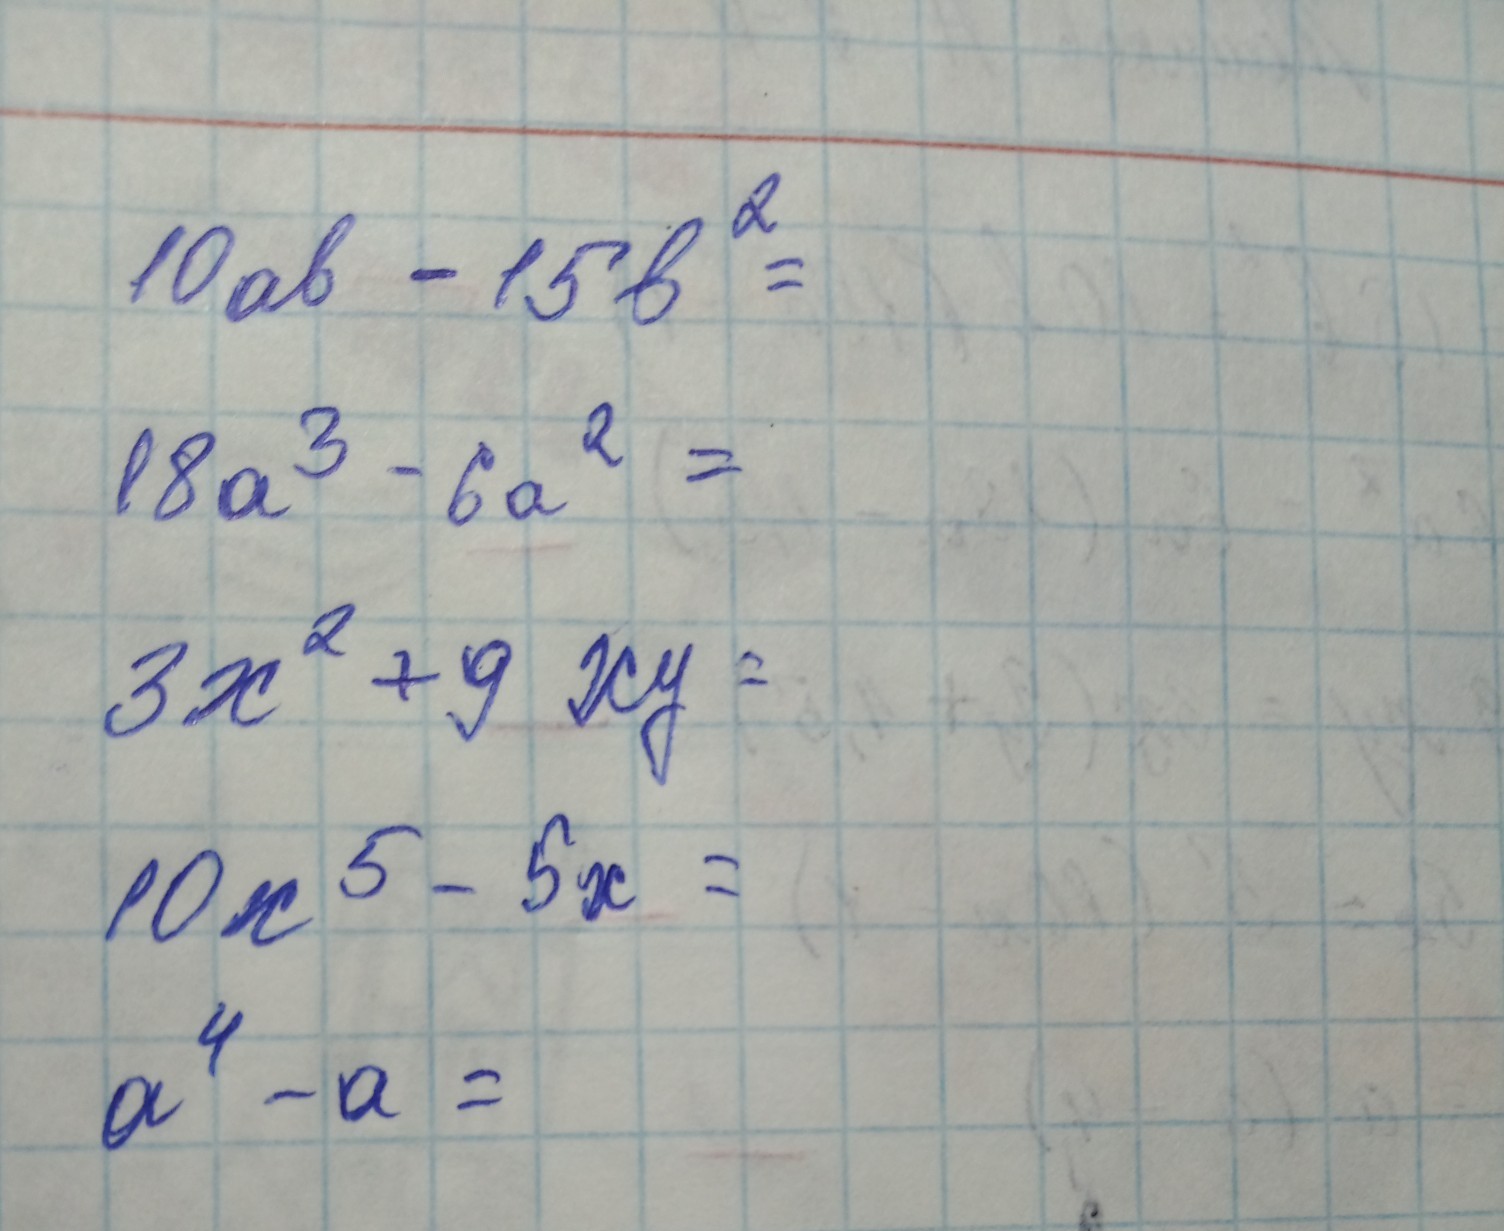 10ab - 15b² =
18a³ - 6a² =
3x² + 9 xy =
10x⁵ - 5x =
a⁴ - a =